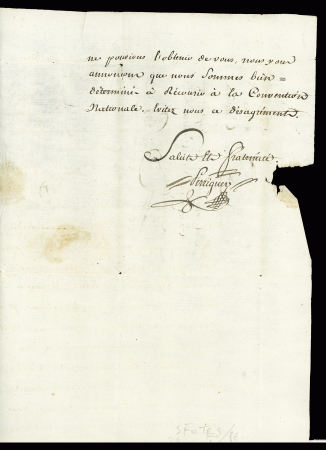 ne pouvions l'obtenir de vous, nous vous
annonçons que nous sommes bien =
determiné à Recourir à la Convention
Nationale. Evitez nous ce désagrément.
Salut et fraternité.